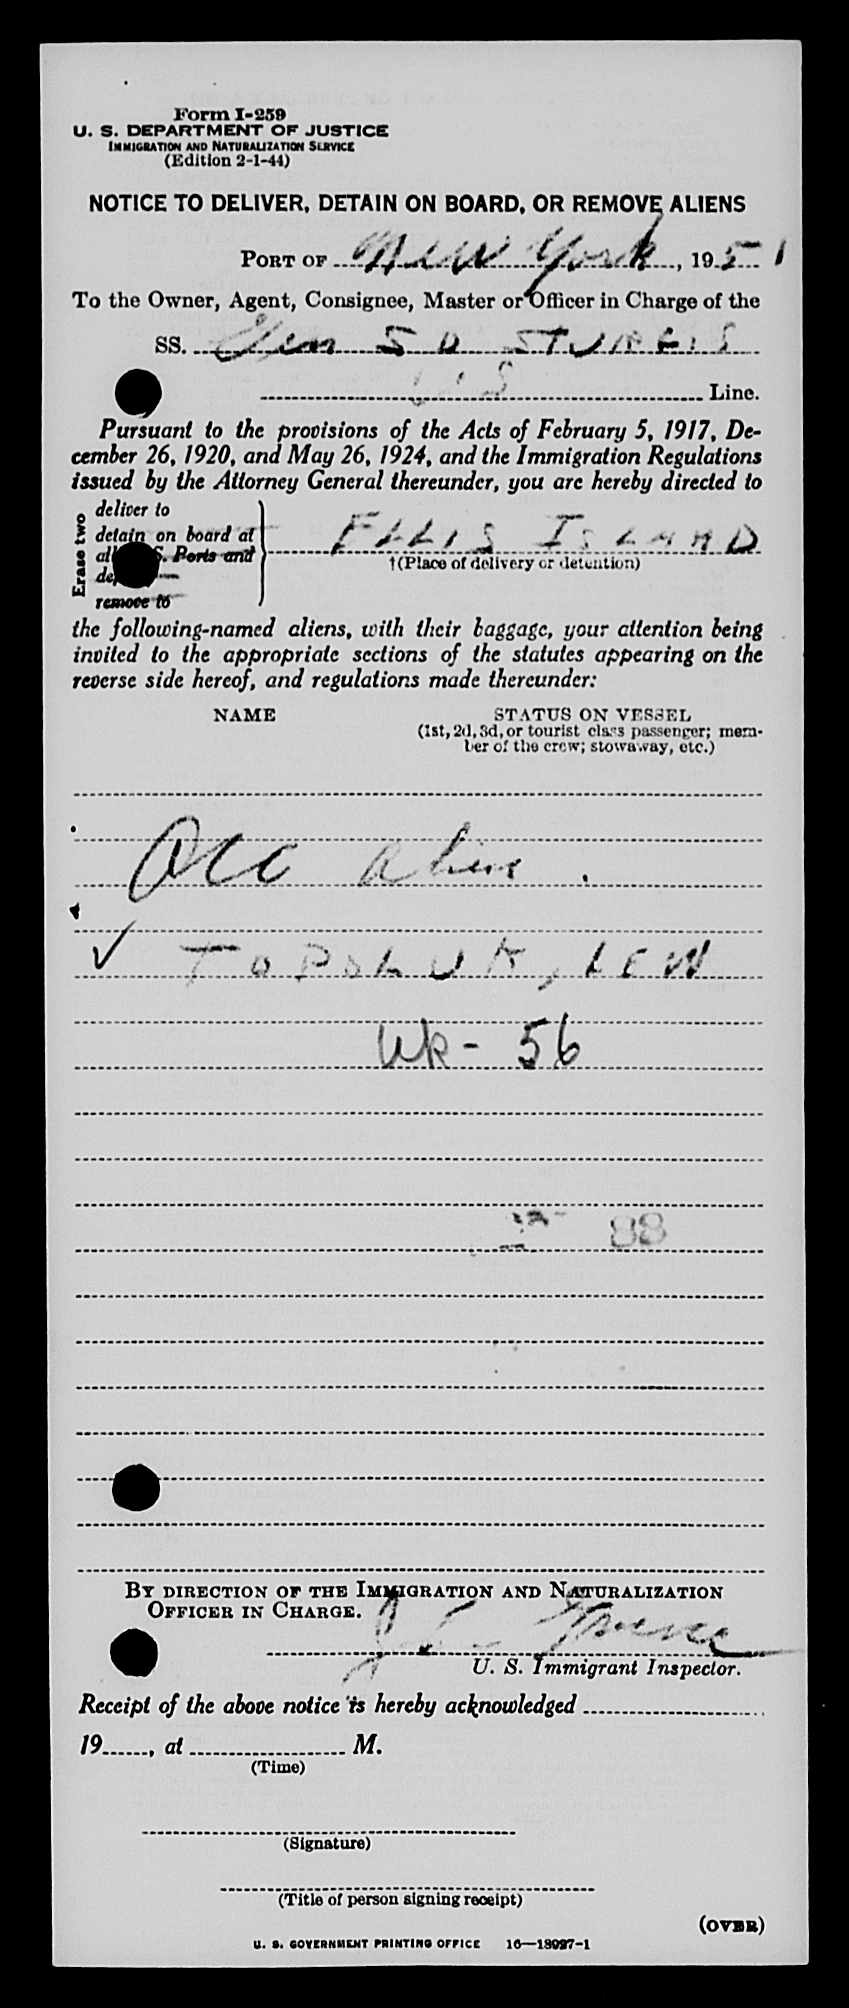 Form I-259
U. S. DEPARTMENT OF JUSTICE
IMMIGRATION AND NATURALIZATION SERVICE
(Edition 2-1-44)
NOTICE TO DELIVER, DETAIN ON BOARD, OR REMOVE ALIENS
PORT OF New York, 1951
To the Owner, Agent, Consignee, Master or Officer in Charge of the
SS. Gen S D STURGIS
US Line.
Pursuant to the provisions of the Acts of February 5, 1917, De-
cember 26, 1920, and May 26, 1924, and the Immigration Regulations
issued by the Attorney General thereunder, you are hereby directed to
Erase two
deliver to
detain on board at
all S. Ports and
remove to
ELLIS ISLAND
†(Place of delivery or detention)
the following-named aliens, with their baggage, your attention being
invited to the appropriate sections of the statutes appearing on the
reverse side hereof, and regulations made thereunder:
NAME STATUS ON VESSEL
(1st, 2d, 3d, or tourist class passenger; mem-
ber of the crew; stowaway, etc.)
Acc Aliens.
✓ TOPOLUK, LEW
Wk- 56
88
BY DIRECTION OF THE IMMIGRATION AND NATURALIZATION
OFFICER IN CHARGE.
U. S. Immigrant Inspector.
Receipt of the above notice is hereby acknowledged
19, at M.
(Time)
(Signature)
(Title of person signing receipt)
(OVER)
U. S. GOVERNMENT PRINTING OFFICE 16—18097-1